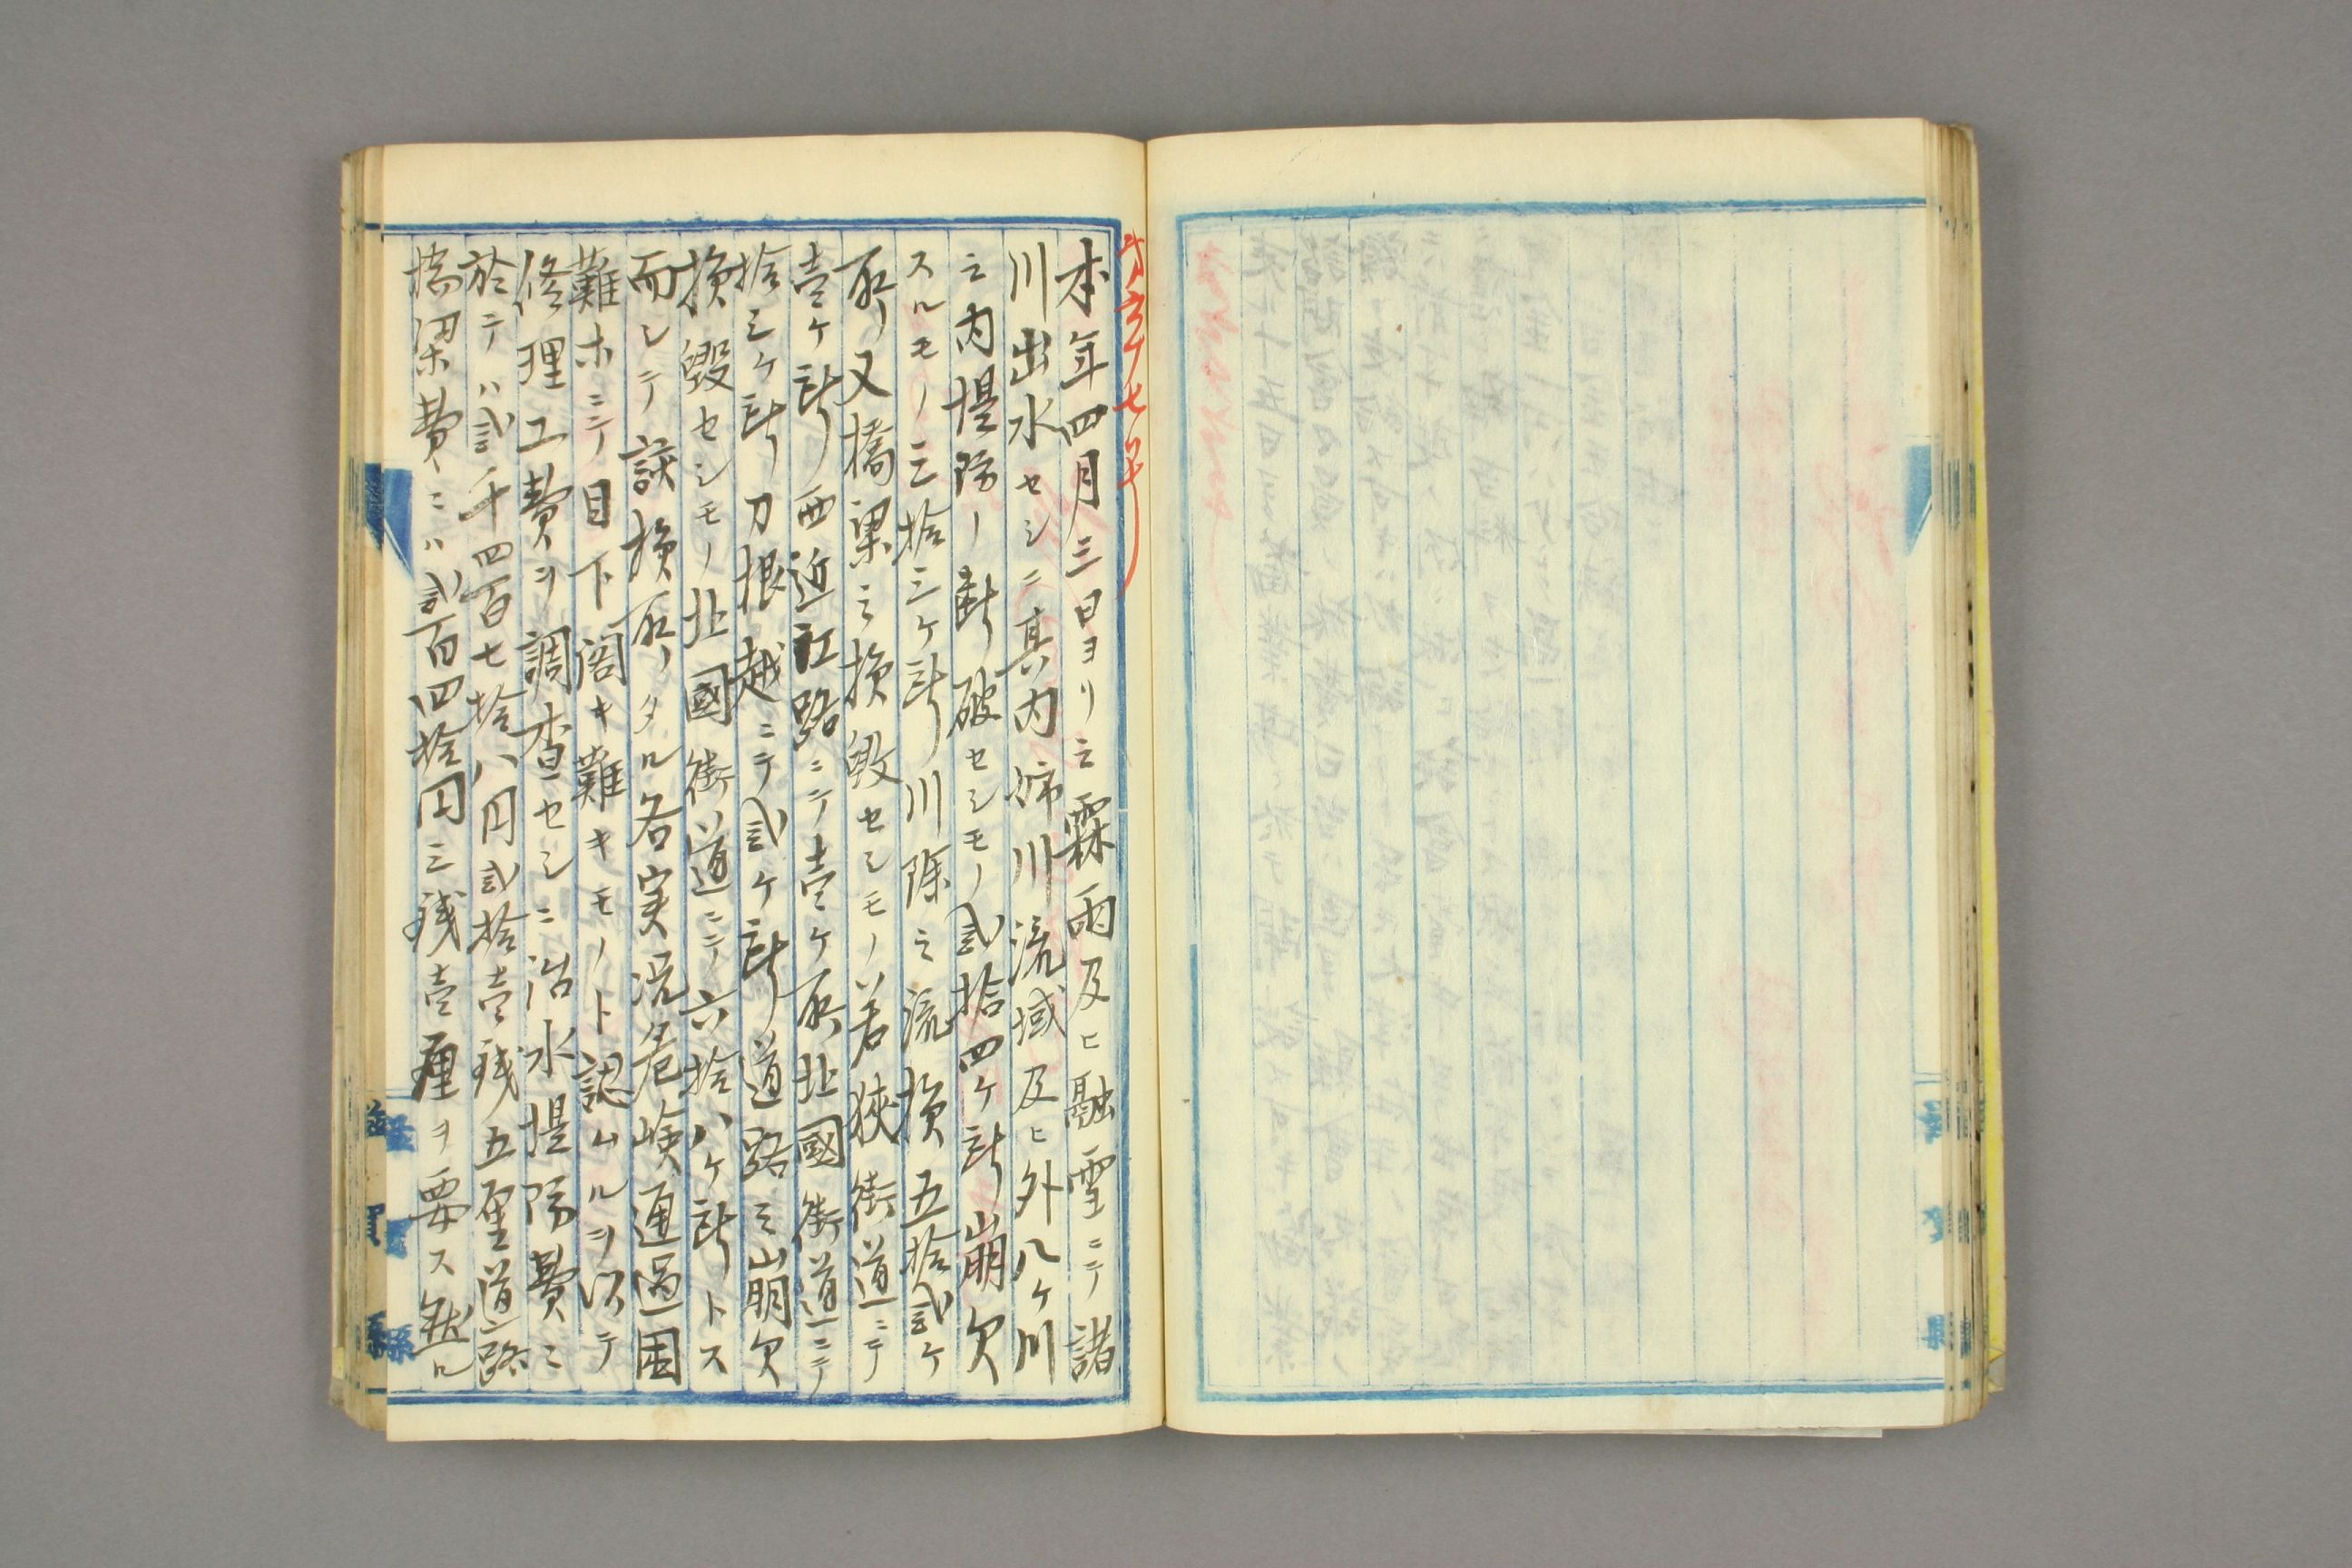 本年四月三日ヨリ之霖雨及ヒ融雪ニテ諸
川出水セシニ其内姉川流域及ヒ外八ケ川
之内堤防ノ断破セシモノ弐拾四ケ所崩欠
スルモノ三拾三ケ所川除之流損五拾弐ケ
所又橋梁之損毀セシモノ若狭街道ニテ
壱ケ所西近江路ニテ壱ケ所北國街道ニテ
拾三ケ所刀根越ニテ弐ケ所道路之山崩欠
損毀セシモノ北國街道ニテ六拾八ケ所トス
而シテ該損所タル名実況危嶮通過困
難ホニテ目下閣キ難キモノト認ムルヲ以テ
修理工費ヲ調査セシニ治水堤防費ニ
於テハ弐千四百七拾八円弐拾壱銭五厘道路
橋梁費ニハ弐百四拾円三銭壱厘ヲ要ス然ル
滋賀縣